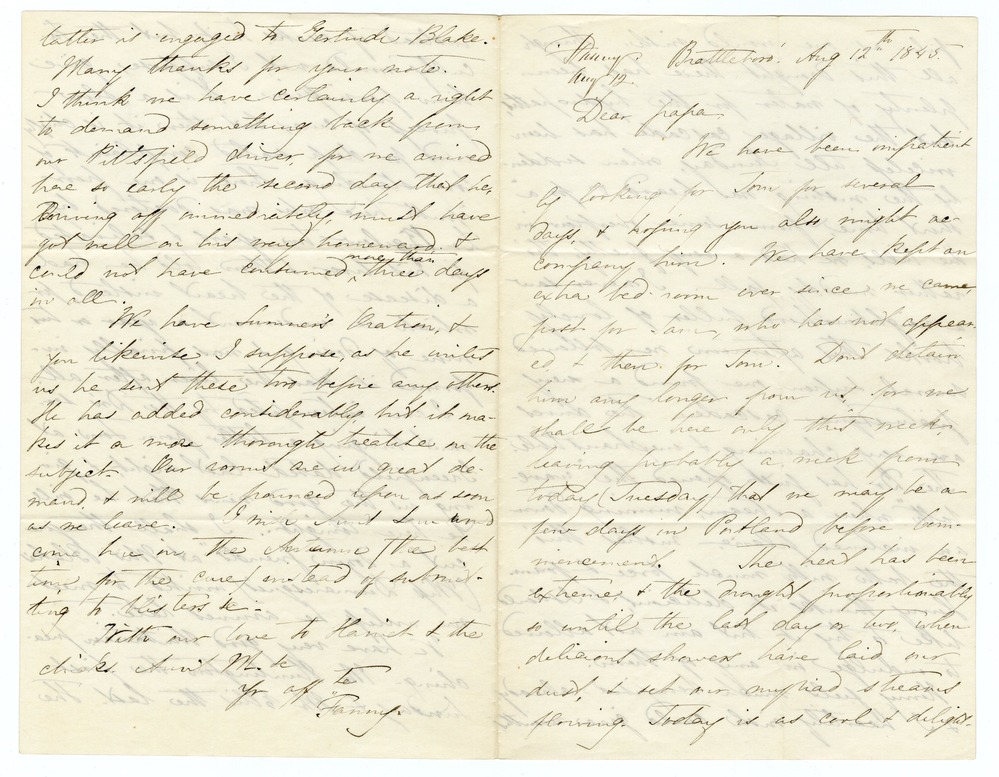 latter is engaged to Gertrude Blake.
Many thanks for your note.
I think we have certainly a right
to demand something back from
our Pittsfield driver for we arrived
here so early the second day that he,
driving off immediately, must have
got well on his way homeward &
could not have consumed more than three days
in all.
We have Sumner's Oration, &
you likewise I suppose, as he writes
us he sent these two before any others.
He has added considerably but it ma-
kes it a more thorough treatise on the
subject. Our rooms are in great de-
mand & will be pounced upon as soon
as we leave. I wish Aunt Sam would
come here in the Autumn (the best
time for the cure) instead of submit-
ting to blisters &c -
With our love to Harriet & the
chicks. Aunt M. &c
Yr aff te
Fanny.
Fanny.
Aug 12.
Brattleboro' Aug 12th 1845.
Dear papa,
We have been impatient
ly looking for Tom for several
days, & hoping you also might ac-
company him. We have kept an
extra bed-room ever since we came,
first for Sam, who has not appear-
ed, & then for Tom. Don't detain
him any longer from us, for we
shall be here only this week,
leaving probably a week from
today (Tuesday) that we may be a
few days in Portland before Com-
mencement. The heat has been
extreme, & the drought proportionably
so until the last day or two, when
delicious showers have laid our
dust, & set our myriad streams
flowing. Today is as cool & delight-